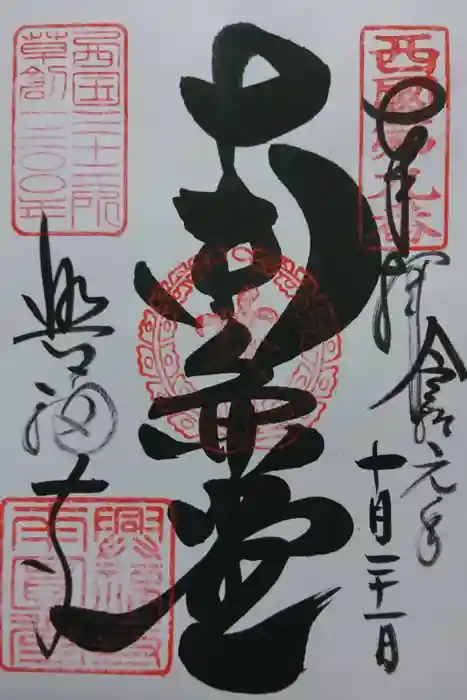 西國第九番
奉拝
令和元年
十月二十一日
南円堂
西国三十三所
草創一三〇〇年
興福寺
興福寺
南圓堂